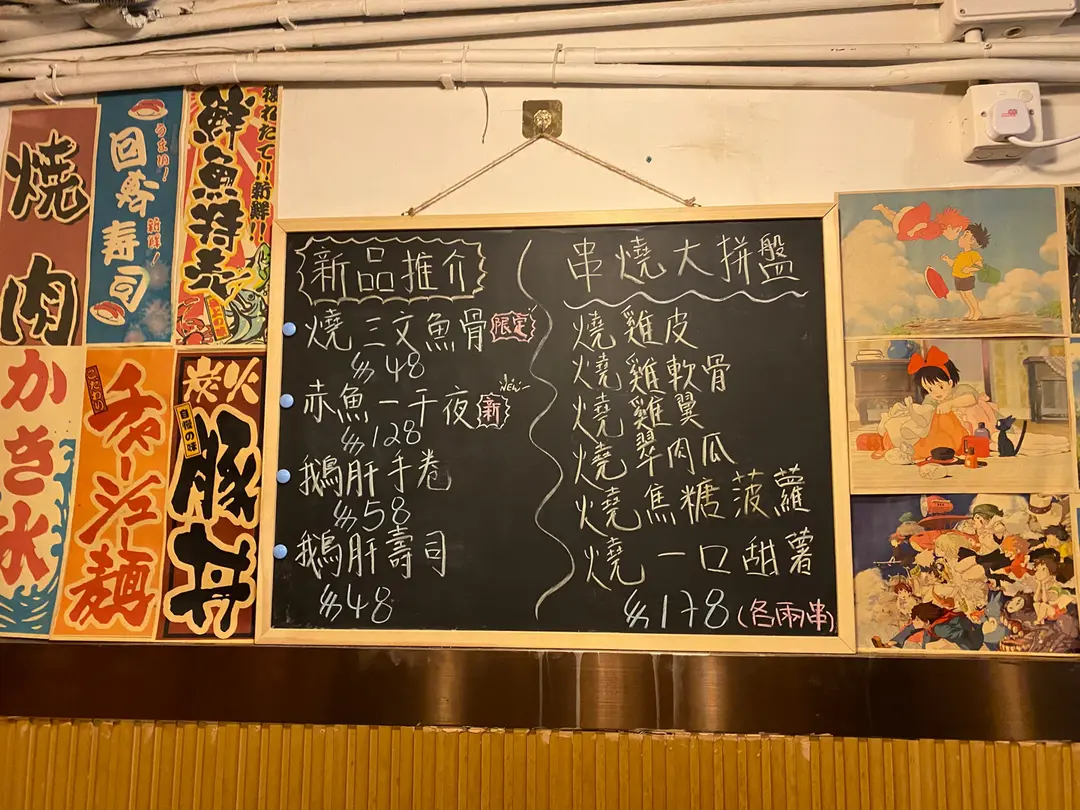 焼肉
回寿
寿司
うまい！
新鮮！
鮮魚特売
かき氷
こだわり
チャーシュー麺
炭火
豚丼
自慢の味
新品推介
燒三文魚骨 限定
$48
赤魚一干夜 新 NEW
$128
鵝肝手卷
$58
鵝肝壽司
$48
串燒大拼盤
燒雞皮
燒雞軟骨
燒雞翼
燒翠肉瓜
燒焦糖菠蘿
燒一口甜薯
$178 (各兩串)